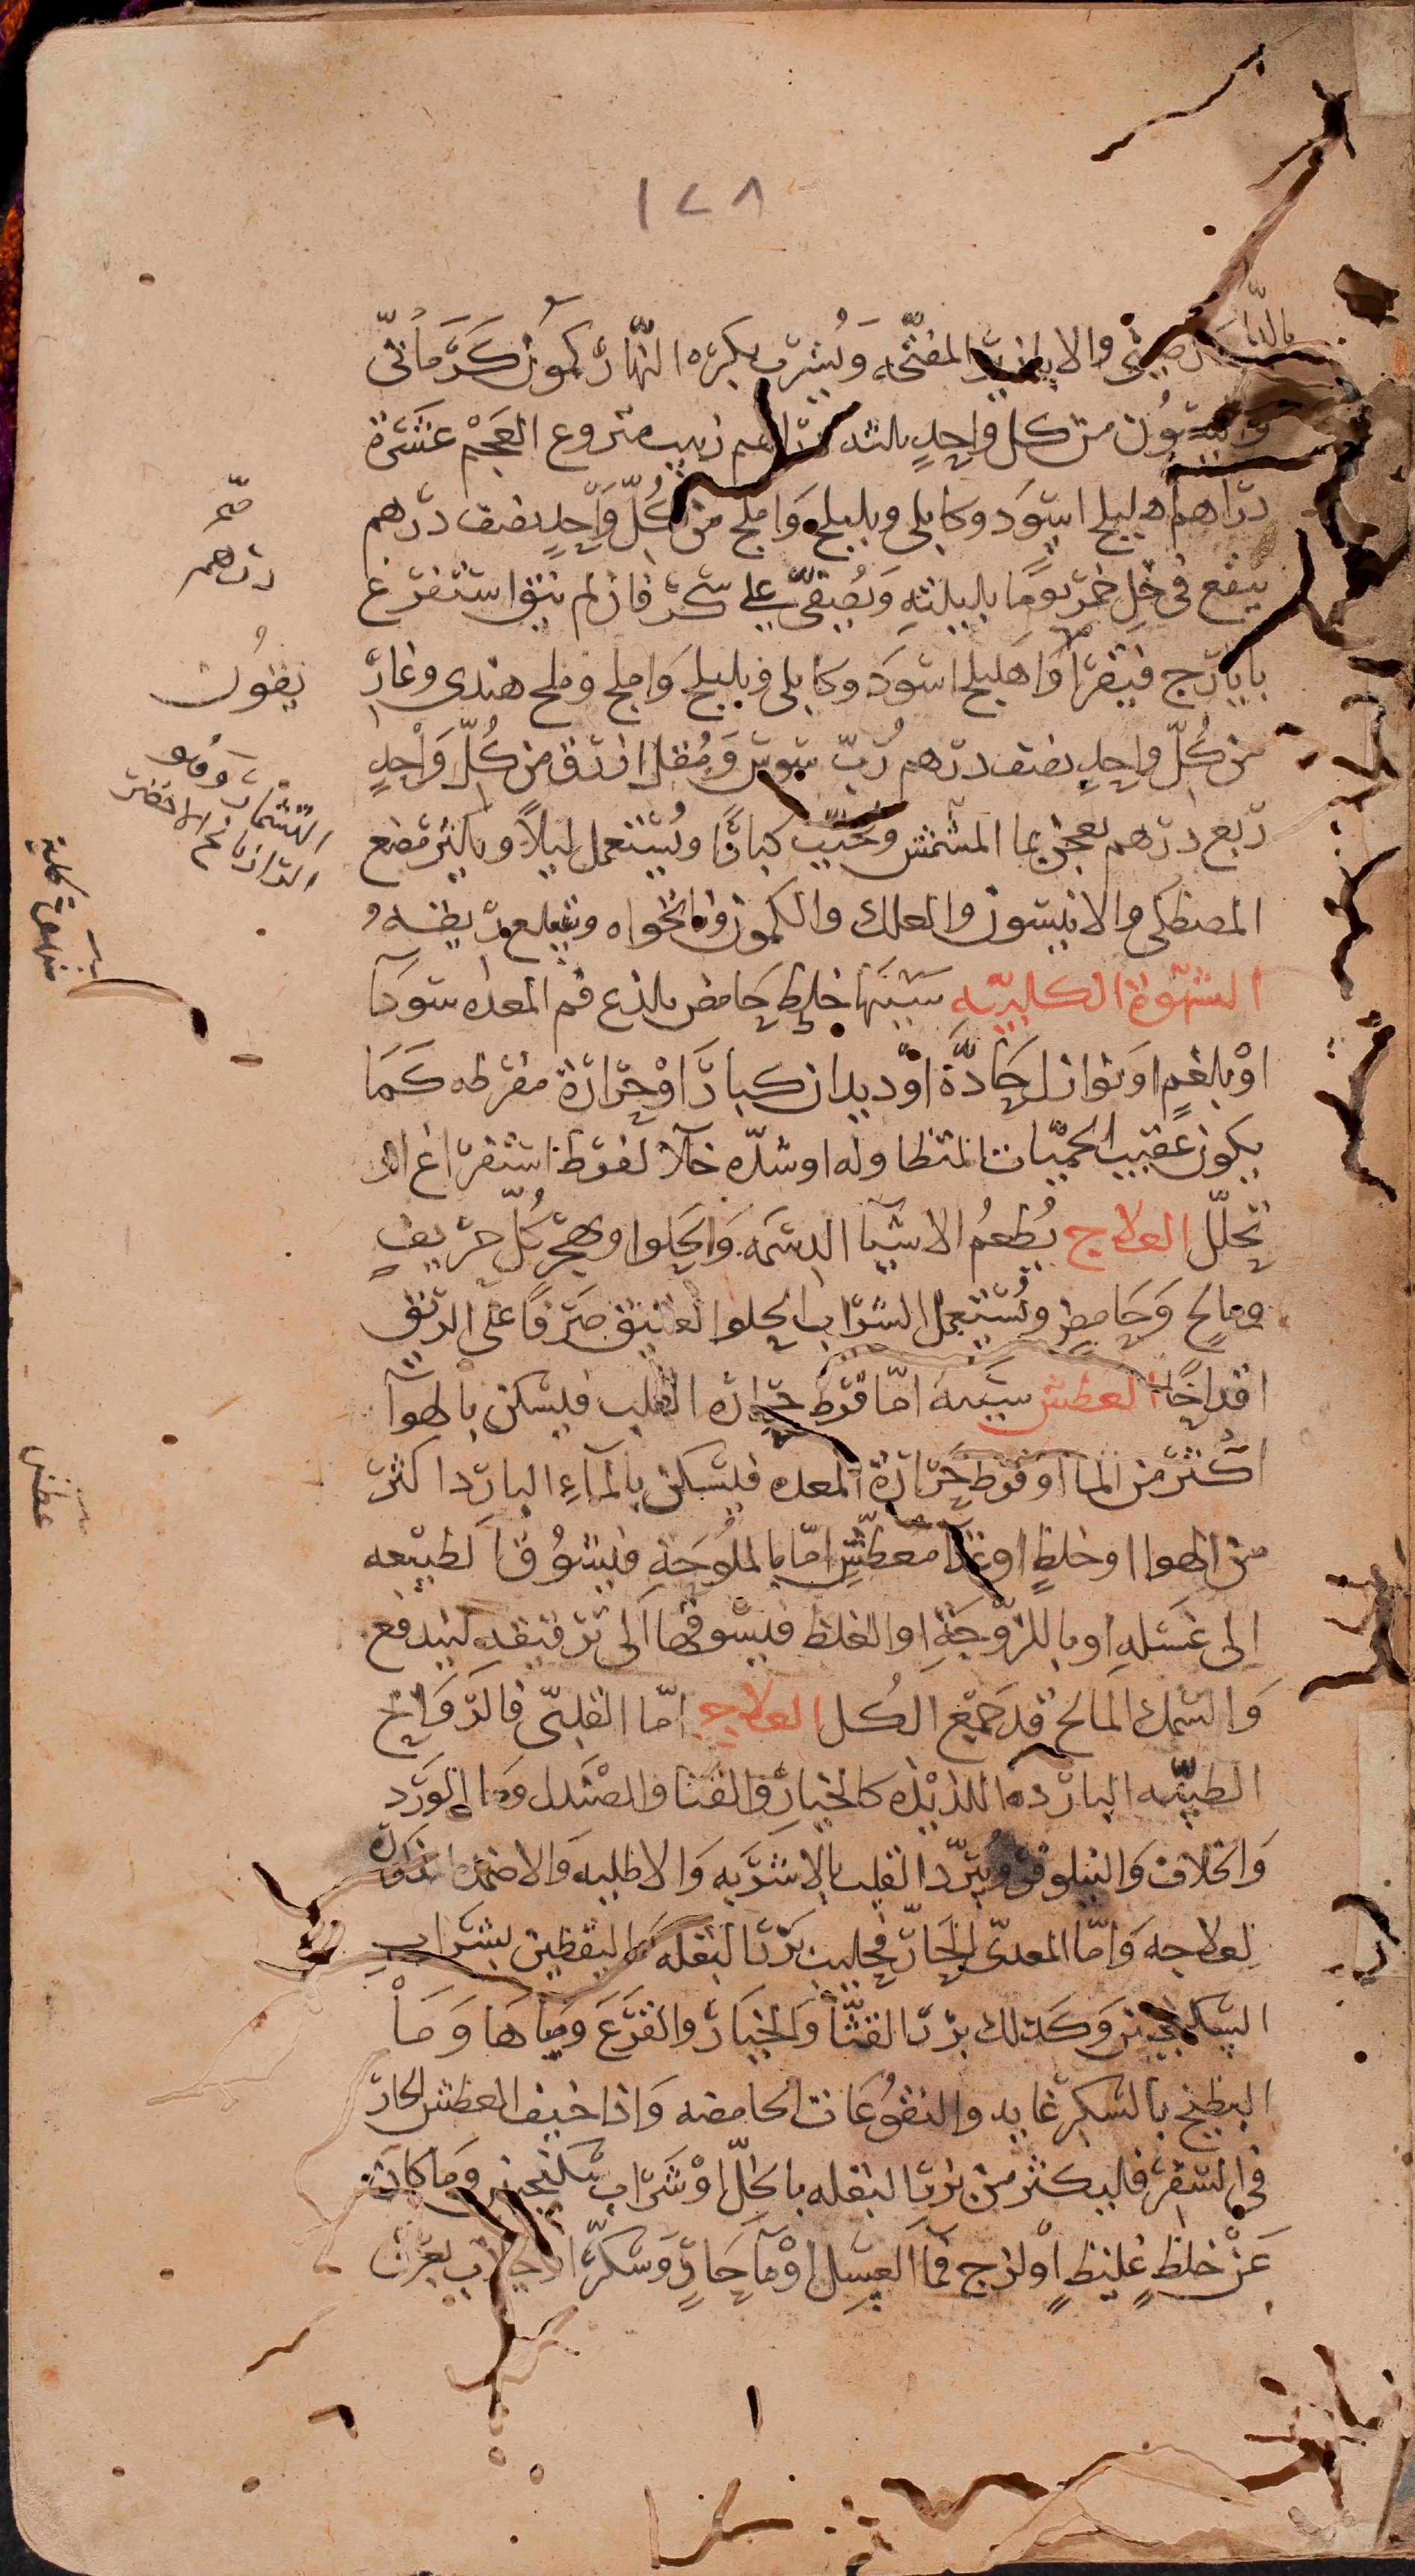 ١٢٨
والابازير المفتحه ويشرب بكرة النهار كمون كرماني
من كل واحد زبيب منزوع العجم عشرة
دراهم هليلج اسود وكابلي وبليلج واملج من كل واحد نصف درهم
ينقع في خل خمر يوما بليلته ويصفى على سكر فان لم ينق استفرغ
بايارج فيقرا واهليلج اسود وكابلي وبليلج واملج وملح هندى وغار
من كل واحد نصف درهم رب سوس ومقل ازرق من كل واحد
ربع درهم يعجن بما المشمش وحبب كبارا ويستعمل ليلا ويكثر مضغ
المصطكى والانيسون والعلك والكمون ونانخواه ويبلع ريقه
الشهوة الكلبيه سببها خلط حامض يلذع فم المعده سودا
او بلغم او نوازل حادة او ديدان كبار او حرارة مفرطه كما
يكون عقيب الحميات المتطاوله او شده خلا لفرط استفراغ او
تحلل العلاج يطعم الاشيا الدسمه والحلوا وهجر كل حريف
ومالح وحامض ويستعمل الشراب الحلو العتيق صرفا على الريق
اقداحا العطش سببه اما فرط حراره القلب فيسكن بالهوآ
اكثر من الما او فرط حرارة المعده فيسكن بالمآء البارد اكثر
من الهوا او خلط او غذا معطش اما بالملوحة فيشوق الطبيعه
الى غسله او باللزوجة او الغلظ فيسوقها الى ترقيقه ليندفع
والسمك المالح قد جمع الكل العلاج اما القلبى فالروايح
الطيبه البارده اللذيذه كالخيار والقثا والصندل وما الورد
والخلاف والنيلوفر ويبرد القلب بالاشربه والاطليه والاضمده
لعلاجه واما المعدى الحار فحليب بزر البقله واليقطين بشراب
السكنجبين وكذلك بزر القثا والخيار والقرع ومياها وما
البطيخ بالسكر غايه والنقوعات الحامضه واذا خيف العطش الحار
في السفر فليكثر من بزر البقله بالخل او شراب سكنجبين وما كان
عن خلط غليظ او لزج فما العسل او مآ حار وسكر
درهم
شهوة كلبية
عطش